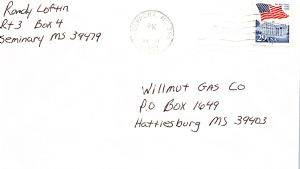 Randy Loftin
Rt 3 Box 4
Seminary MS 39479
PM
Willmut Gas Co
P.O Box 1649
Hattiesburg MS 39403